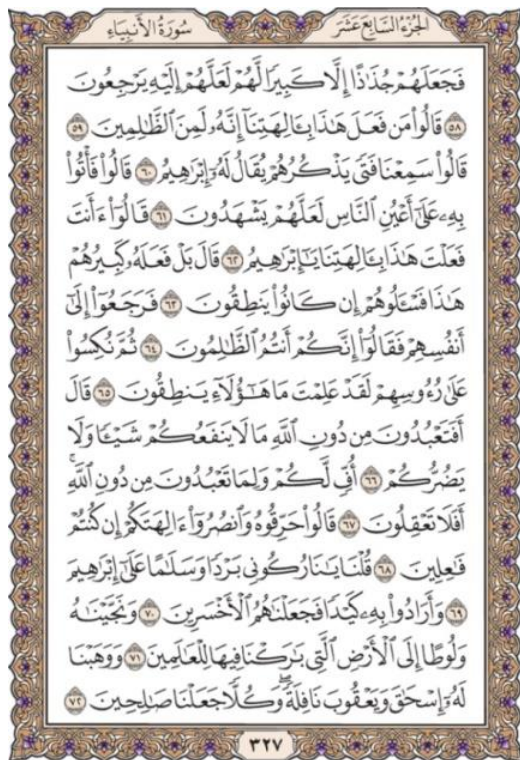 الجزء السابع عشر
سورة الأنبياء
فَجَعَلَهُمْ جُذَاذًا إِلَّا كَبِيرًا لَّهُمْ لَعَلَّهُمْ إِلَيْهِ يَرْجِعُونَ
٥٨ قَالُوا۟ مَن فَعَلَ هَـٰذَا بِـَٔالِهَتِنَآ إِنَّهُۥ لَمِنَ ٱلظَّـٰلِمِينَ ٥٩
قَالُوا۟ سَمِعْنَا فَتًى يَذْكُرُهُمْ يُقَالُ لَهُۥٓ إِبْرَٰهِيمُ ٦٠ قَالُوا۟ فَأْتُوا۟
بِهِۦ عَلَىٰٓ أَعْيُنِ ٱلنَّاسِ لَعَلَّهُمْ يَشْهَدُونَ ٦١ قَالُوٓا۟ ءَأَنتَ
فَعَلْتَ هَـٰذَا بِـَٔالِهَتِنَا يَـٰٓإِبْرَٰهِيمُ ٦٢ قَالَ بَلْ فَعَلَهُۥ كَبِيرُهُمْ
هَـٰذَا فَسْـَٔلُوهُمْ إِن كَانُوا۟ يَنطِقُونَ ٦٣ فَرَجَعُوٓا۟ إِلَىٰٓ
أَنفُسِهِمْ فَقَالُوٓا۟ إِنَّكُمْ أَنتُمُ ٱلظَّـٰلِمُونَ ٦٤ ثُمَّ نُكِسُوا۟
عَلَىٰ رُءُوسِهِمْ لَقَدْ عَلِمْتَ مَا هَـٰٓؤُلَآءِ يَنطِقُونَ ٦٥ قَالَ
أَفَتَعْبُدُونَ مِن دُونِ ٱللَّهِ مَا لَا يَنفَعُكُمْ شَيْـًٔا وَلَا
يَضُرُّكُمْ ٦٦ أُفٍّ لَّكُمْ وَلِمَا تَعْبُدُونَ مِن دُونِ ٱللَّهِ ۖ
أَفَلَا تَعْقِلُونَ ٦٧ قَالُوا۟ حَرِّقُوهُ وَٱنصُرُوٓا۟ ءَالِهَتَكُمْ إِن كُنتُمْ
فَـٰعِلِينَ ٦٨ قُلْنَا يَـٰنَارُ كُونِى بَرْدًا وَسَلَـٰمًا عَلَىٰٓ إِبْرَٰهِيمَ
٦٩ وَأَرَادُوا۟ بِهِۦ كَيْدًا فَجَعَلْنَـٰهُمُ ٱلْأَخْسَرِينَ ٧٠ وَنَجَّيْنَـٰهُ
وَلُوطًا إِلَى ٱلْأَرْضِ ٱلَّتِى بَـٰرَكْنَا فِيهَا لِلْعَـٰلَمِينَ ٧١ وَوَهَبْنَا
لَهُۥٓ إِسْحَـٰقَ وَيَعْقُوبَ نَافِلَةً ۖ وَكُلًّا جَعَلْنَا صَـٰلِحِينَ ٧٢
٣٢٧